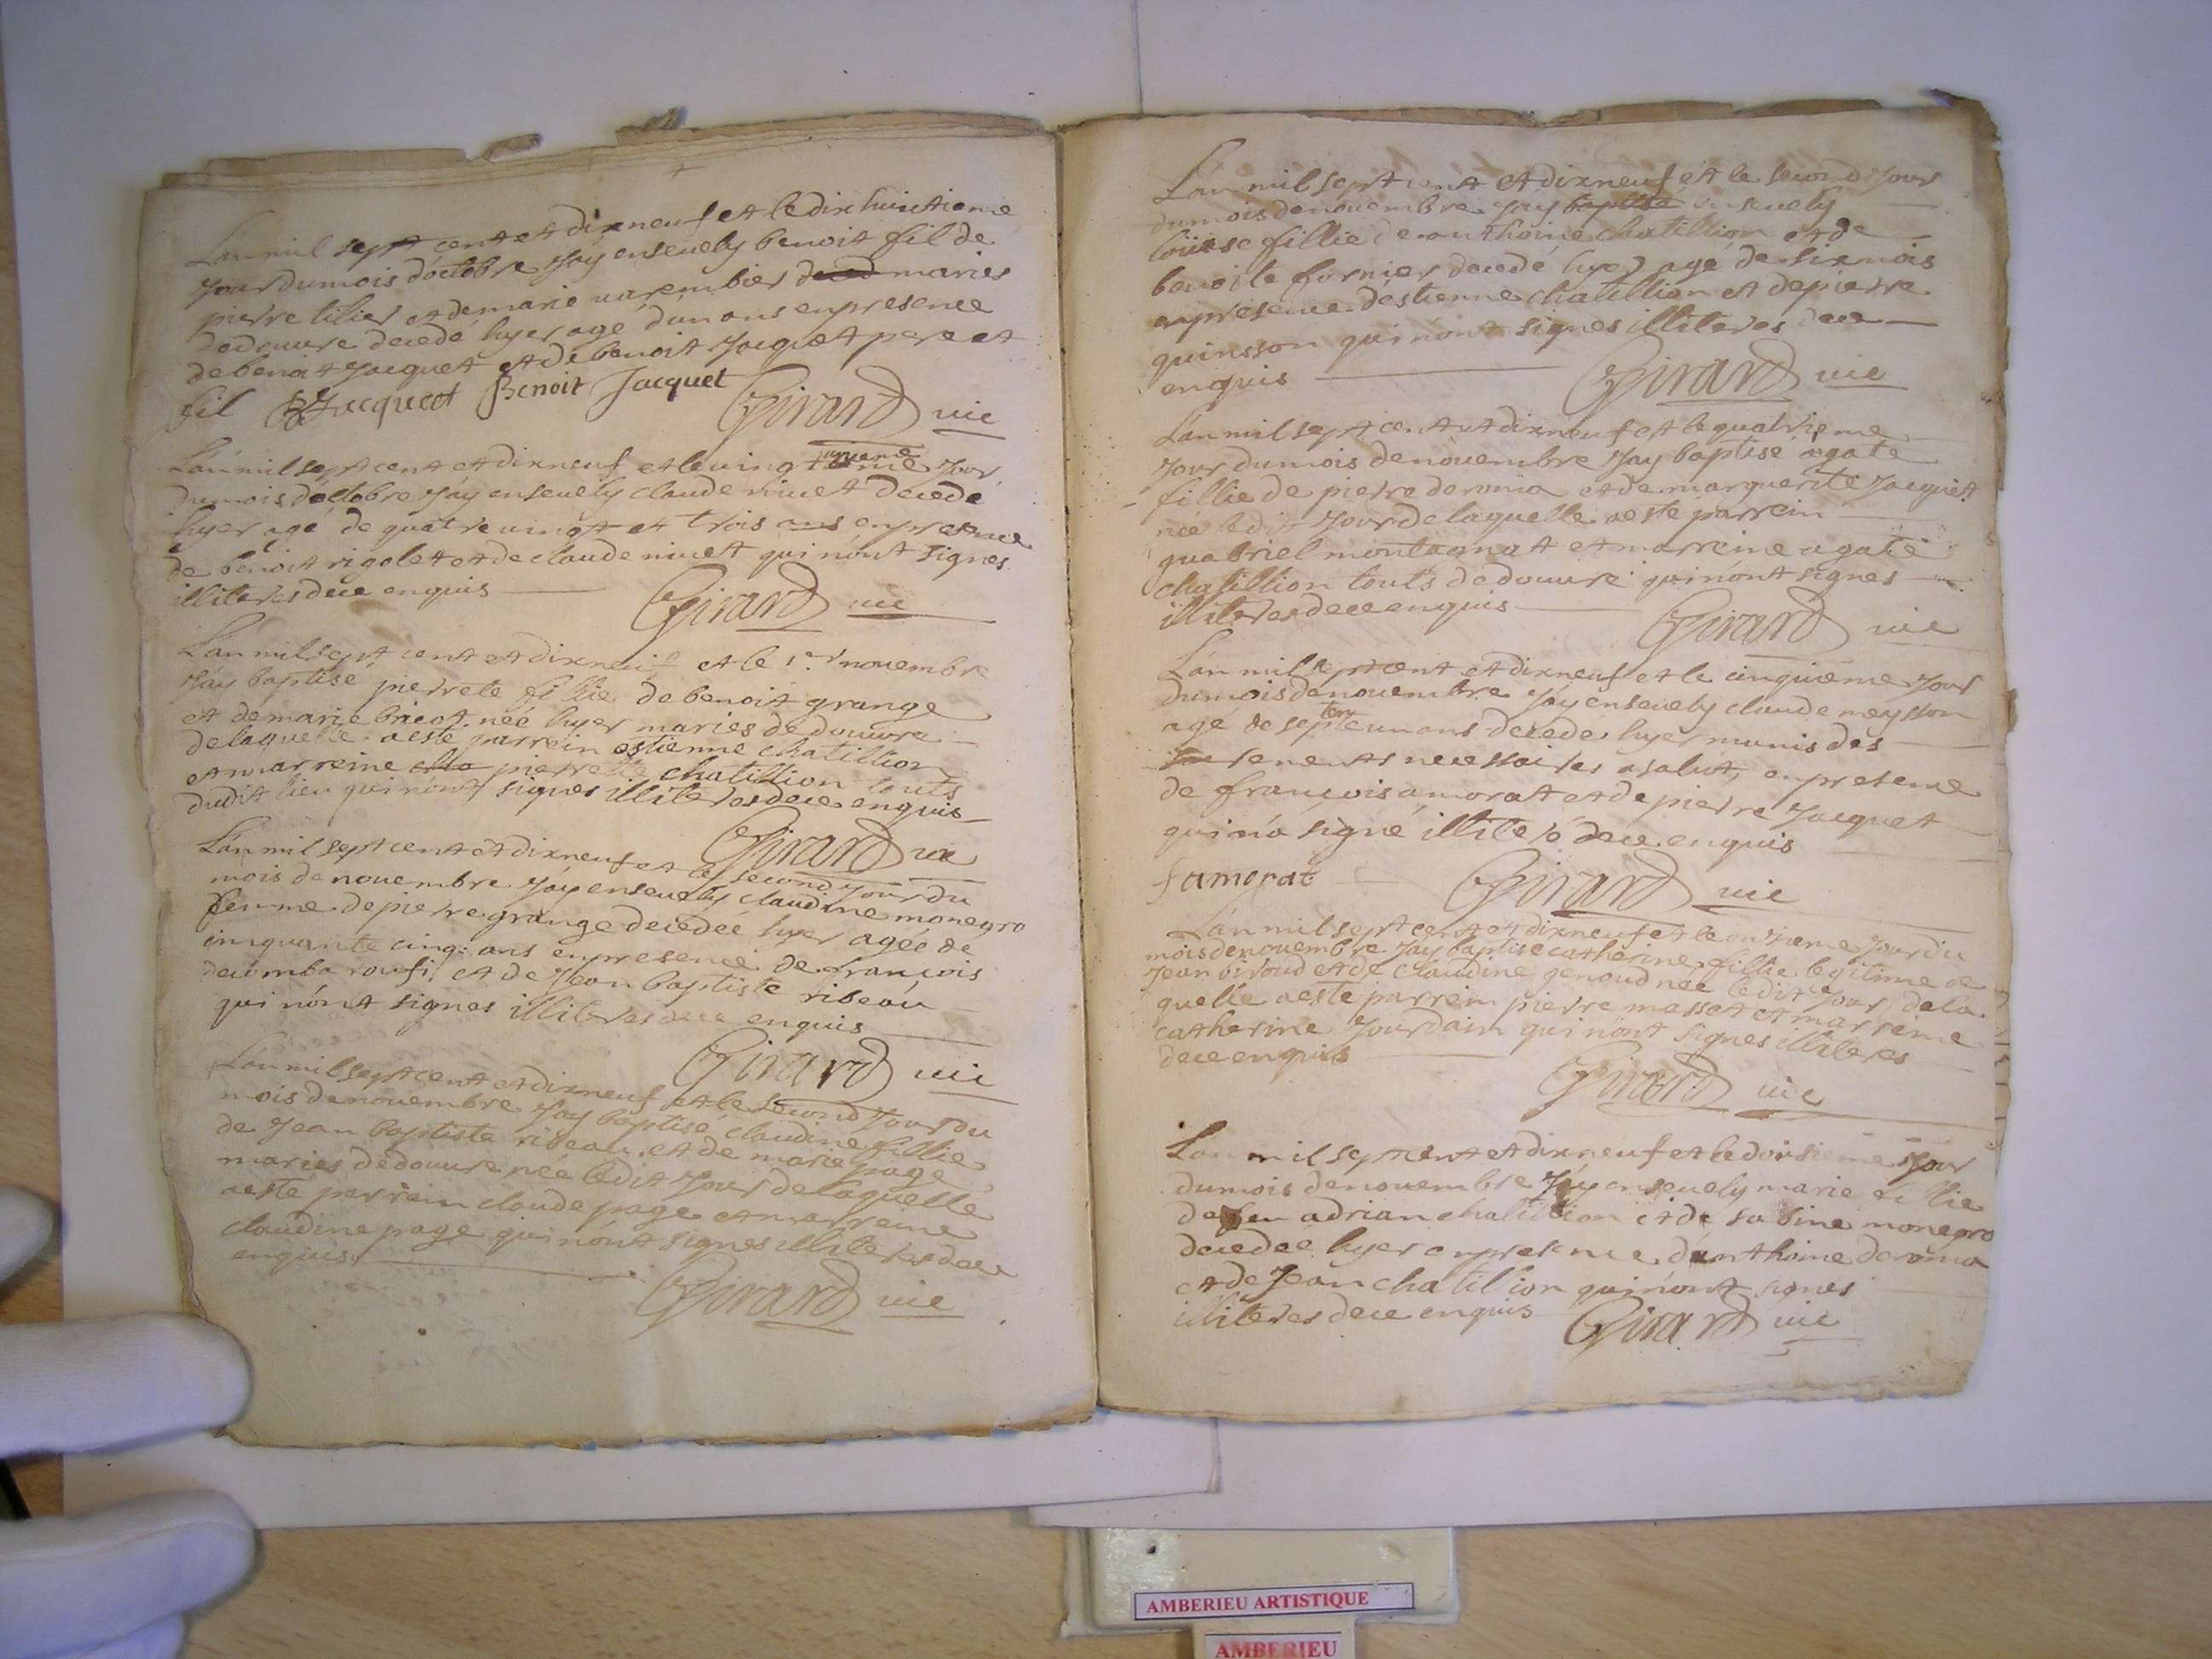 L'an mil sept cent et dixneuf et le dix huictieme
jour du mois d'octobre j'ay ensevely benoit fil de
pierre tilier et de marie varembier maries
de douvre decedé hyer agé d'un ans en presence
de benoit jacquet et de benoit jacquet pere et
fil BJacquet Benoit Jacquet Girard vic
L'an mil sept cent et dixneuf et le vingt jour
du mois d'octobre j'ay ensevely claude nivet decedé
hyer agé de quatre vingt et trois ans en presence
de benoit rigolet et de claude nivet qui n'ont signes
illiteres de ce enquis Girard vic
L'an mil sept cent et dixneuf et le 1er novembre
j'ay baptisé pierrete fillie de benoit grange
et de marie bricot née hyer maries de douvre
de laquelle a esté parrein estienne chatillion
et marreine pierrette chatillion touts
dudit lieu qui n'ont signes illiteres de ce enquis
Girard vic
L'an mil sept cent et dixneuf et le second jour du
mois de novembre j'ay ensevely claudine monegro
femme de pierre grange decedée hyer agée de
cinquante cinq ans en presence de francois
decomba roufi et de jean baptiste ribeau
qui n'ont signes illiteres de ce enquis
Girard vic
L'an mil sept cent et dixneuf et le second jour du
mois de novembre j'ay baptisé claudine fillie
de jean baptiste ribeau et de marie page
maries de douvre née ledit jour de laquelle
a esté parrein claude page et marreine
claudine page qui n'ont signes illiteres de ce
enquis
Girard vic
L'an mil sept cent et dixneuf et le second jour
du mois de novembre j'ay baptisé ensevely
louise fillie de anthoine chatillion et de
benoite fornier decedé hyer agé de six mois
en presence d'estienne chatillion et de pierre
quinsson qui n'ont signes illiteres de ce
enquis Girard vic
L'an mil sept cent et dixneuf et le quatrieme
jour du mois de novembre j'ay baptisé agate
fillie de pierre deronia et de marguerite jacquet
née ledit jour de laquelle a esté parrein
guabriel montagnat et marreine agate
chatillion touts de douvre qui n'ont signes
illiteres de ce enquis Girard vic
L'an mil sept cent et dixneuf et le cinquieme jour
du mois de novembre j'ay ensevely claude neysson
agé de septente un ans decedé hyer munis des
sacrements necessaires a salut, en presence
de francois amorat et de pierre jacquet
qui n'a signé illiteré de ce enquis
f amorat Girard vic
L'an mil sept cent et dixneuf et le onzieme jour du
mois de novembre j'ay baptise catherine fillie legitime de
jean biroud et de claudine genoud née ledit jour, de la
quelle a esté parrein pierre masset et marreine
catherine jourdain qui n'ont signes illiteres
de ce enquis
Girard vic
L'an mil sept cent et dixneuf et le dousieme jour
du mois de novembre j'ay ensevely marie fillie
de feu adrian chatillion et de sabine monegro
decedée hyer en presence d'anthoine deronia
et de jean chatillion qui n'ont signes
illiteres de ce enquis Girard vic
AMBERIEU ARTISTIQUE
AMBERIEU